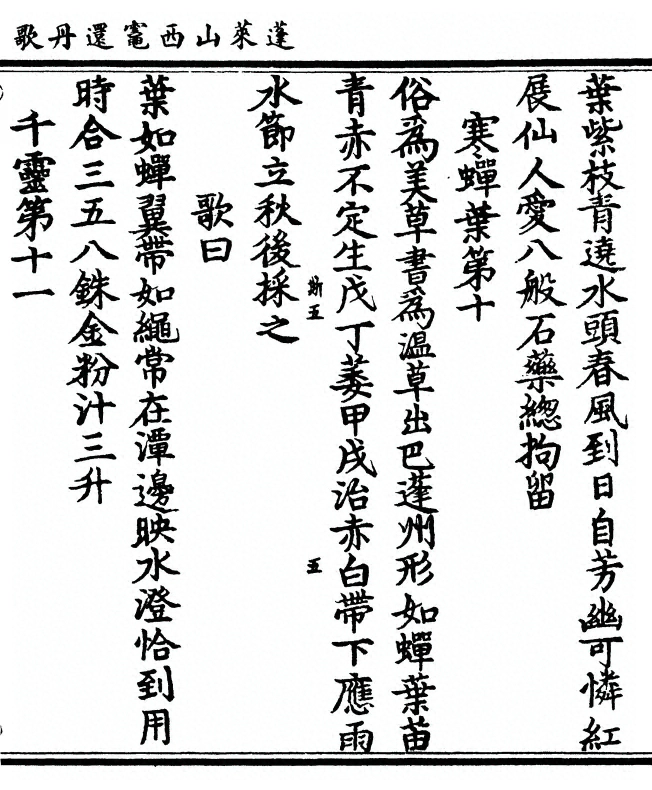 蓬萊山西竈還丹歌
葉紫枝青遶水頭春風到日自芳幽可憐紅
展仙人愛八般石藥緫拘留
寒蟬葉第十
俗為美草書為温草出巴蓬州形如蟬葉苗
青赤不定生戊丁萎甲戌治赤白帶下應雨
水節立秋後採之
歌曰
葉如蟬翼帶如繩常在潭邊映水澄恰到用
時合三五八銖金粉汁三升
千靈第十一
五